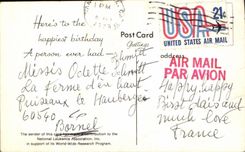 PM
USA 21c
UNITED STATES AIR MAIL
Here's to the
happiest birthday
Post Card
A person ever had -
address
AIR MAIL
PAR AVION
Missis Odette Schmitt
La ferme d'en haut
Puiseux le Hauberger
60540
Bornel
Happy, happy
Birthdays and
much love
France
The sender of this card
National Leukemia Association, Inc.
in support of its World-Wide Research Program